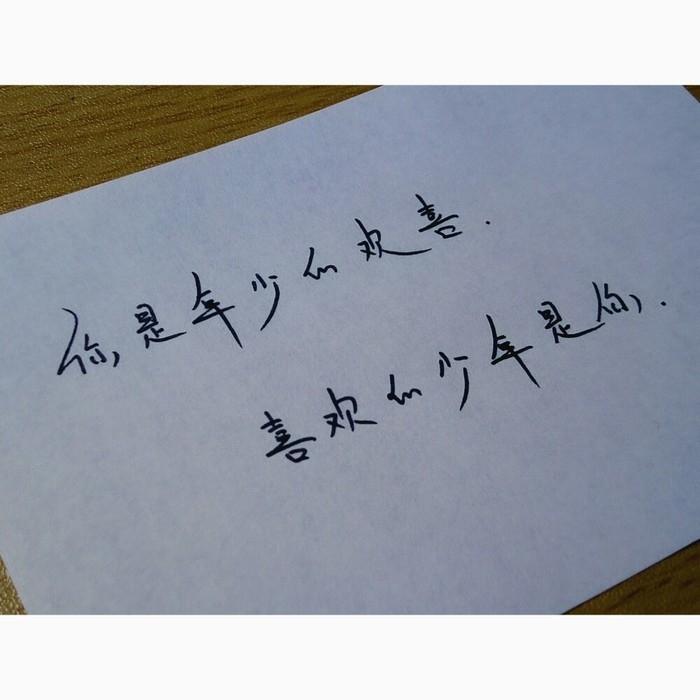 你是年少的欢喜.
喜欢的少年是你.